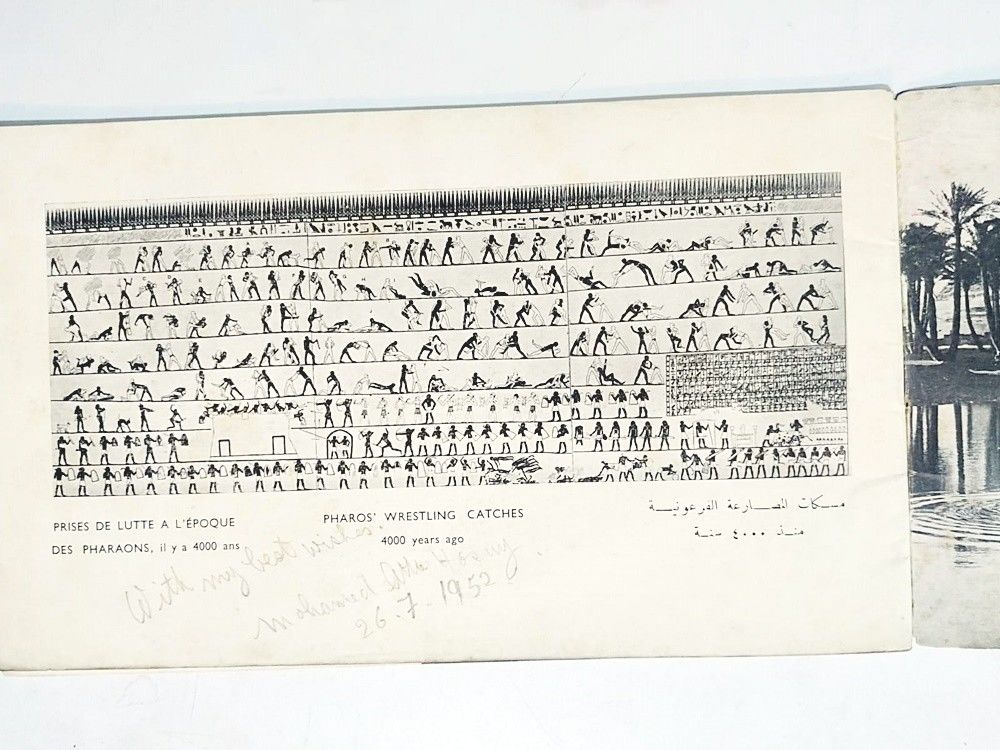 PRISES DE LUTTE A L'ÉPOQUE
DES PHARAONS, il y a 4000 ans
PHAROS' WRESTLING CATCHES
4000 years ago
مسكات المصارعة الفرعونية
منذ ٤٠٠٠ سنة
With my best wishes.
Mohamed
26.7.1952